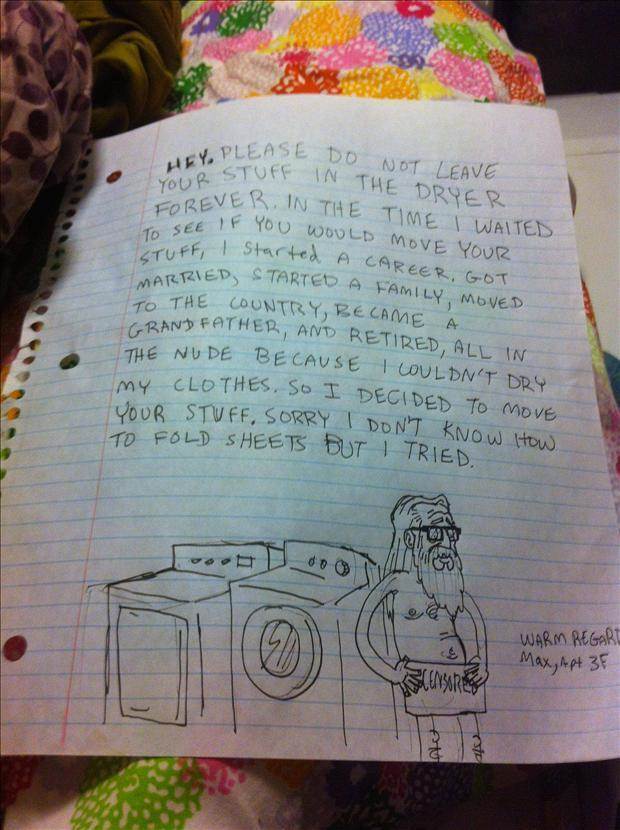 HEY. PLEASE DO NOT LEAVE
YOUR STUFF IN THE DRYER
FOREVER. IN THE TIME I WAITED
TO SEE IF YOU WOULD MOVE YOUR
STUFF, I started A CAREER. GOT
MARRIED, STARTED A FAMILY, MOVED
TO THE COUNTRY, BECAME A
GRANDFATHER, AND RETIRED, ALL IN
THE NUDE BECAUSE I COULDN'T DRY
MY CLOTHES. SO I DECIDED TO MOVE
YOUR STUFF. SORRY I DON'T KNOW HOW
TO FOLD SHEETS BUT I TRIED.
CENSORED
WARM REGARD
Max, Apt 3F